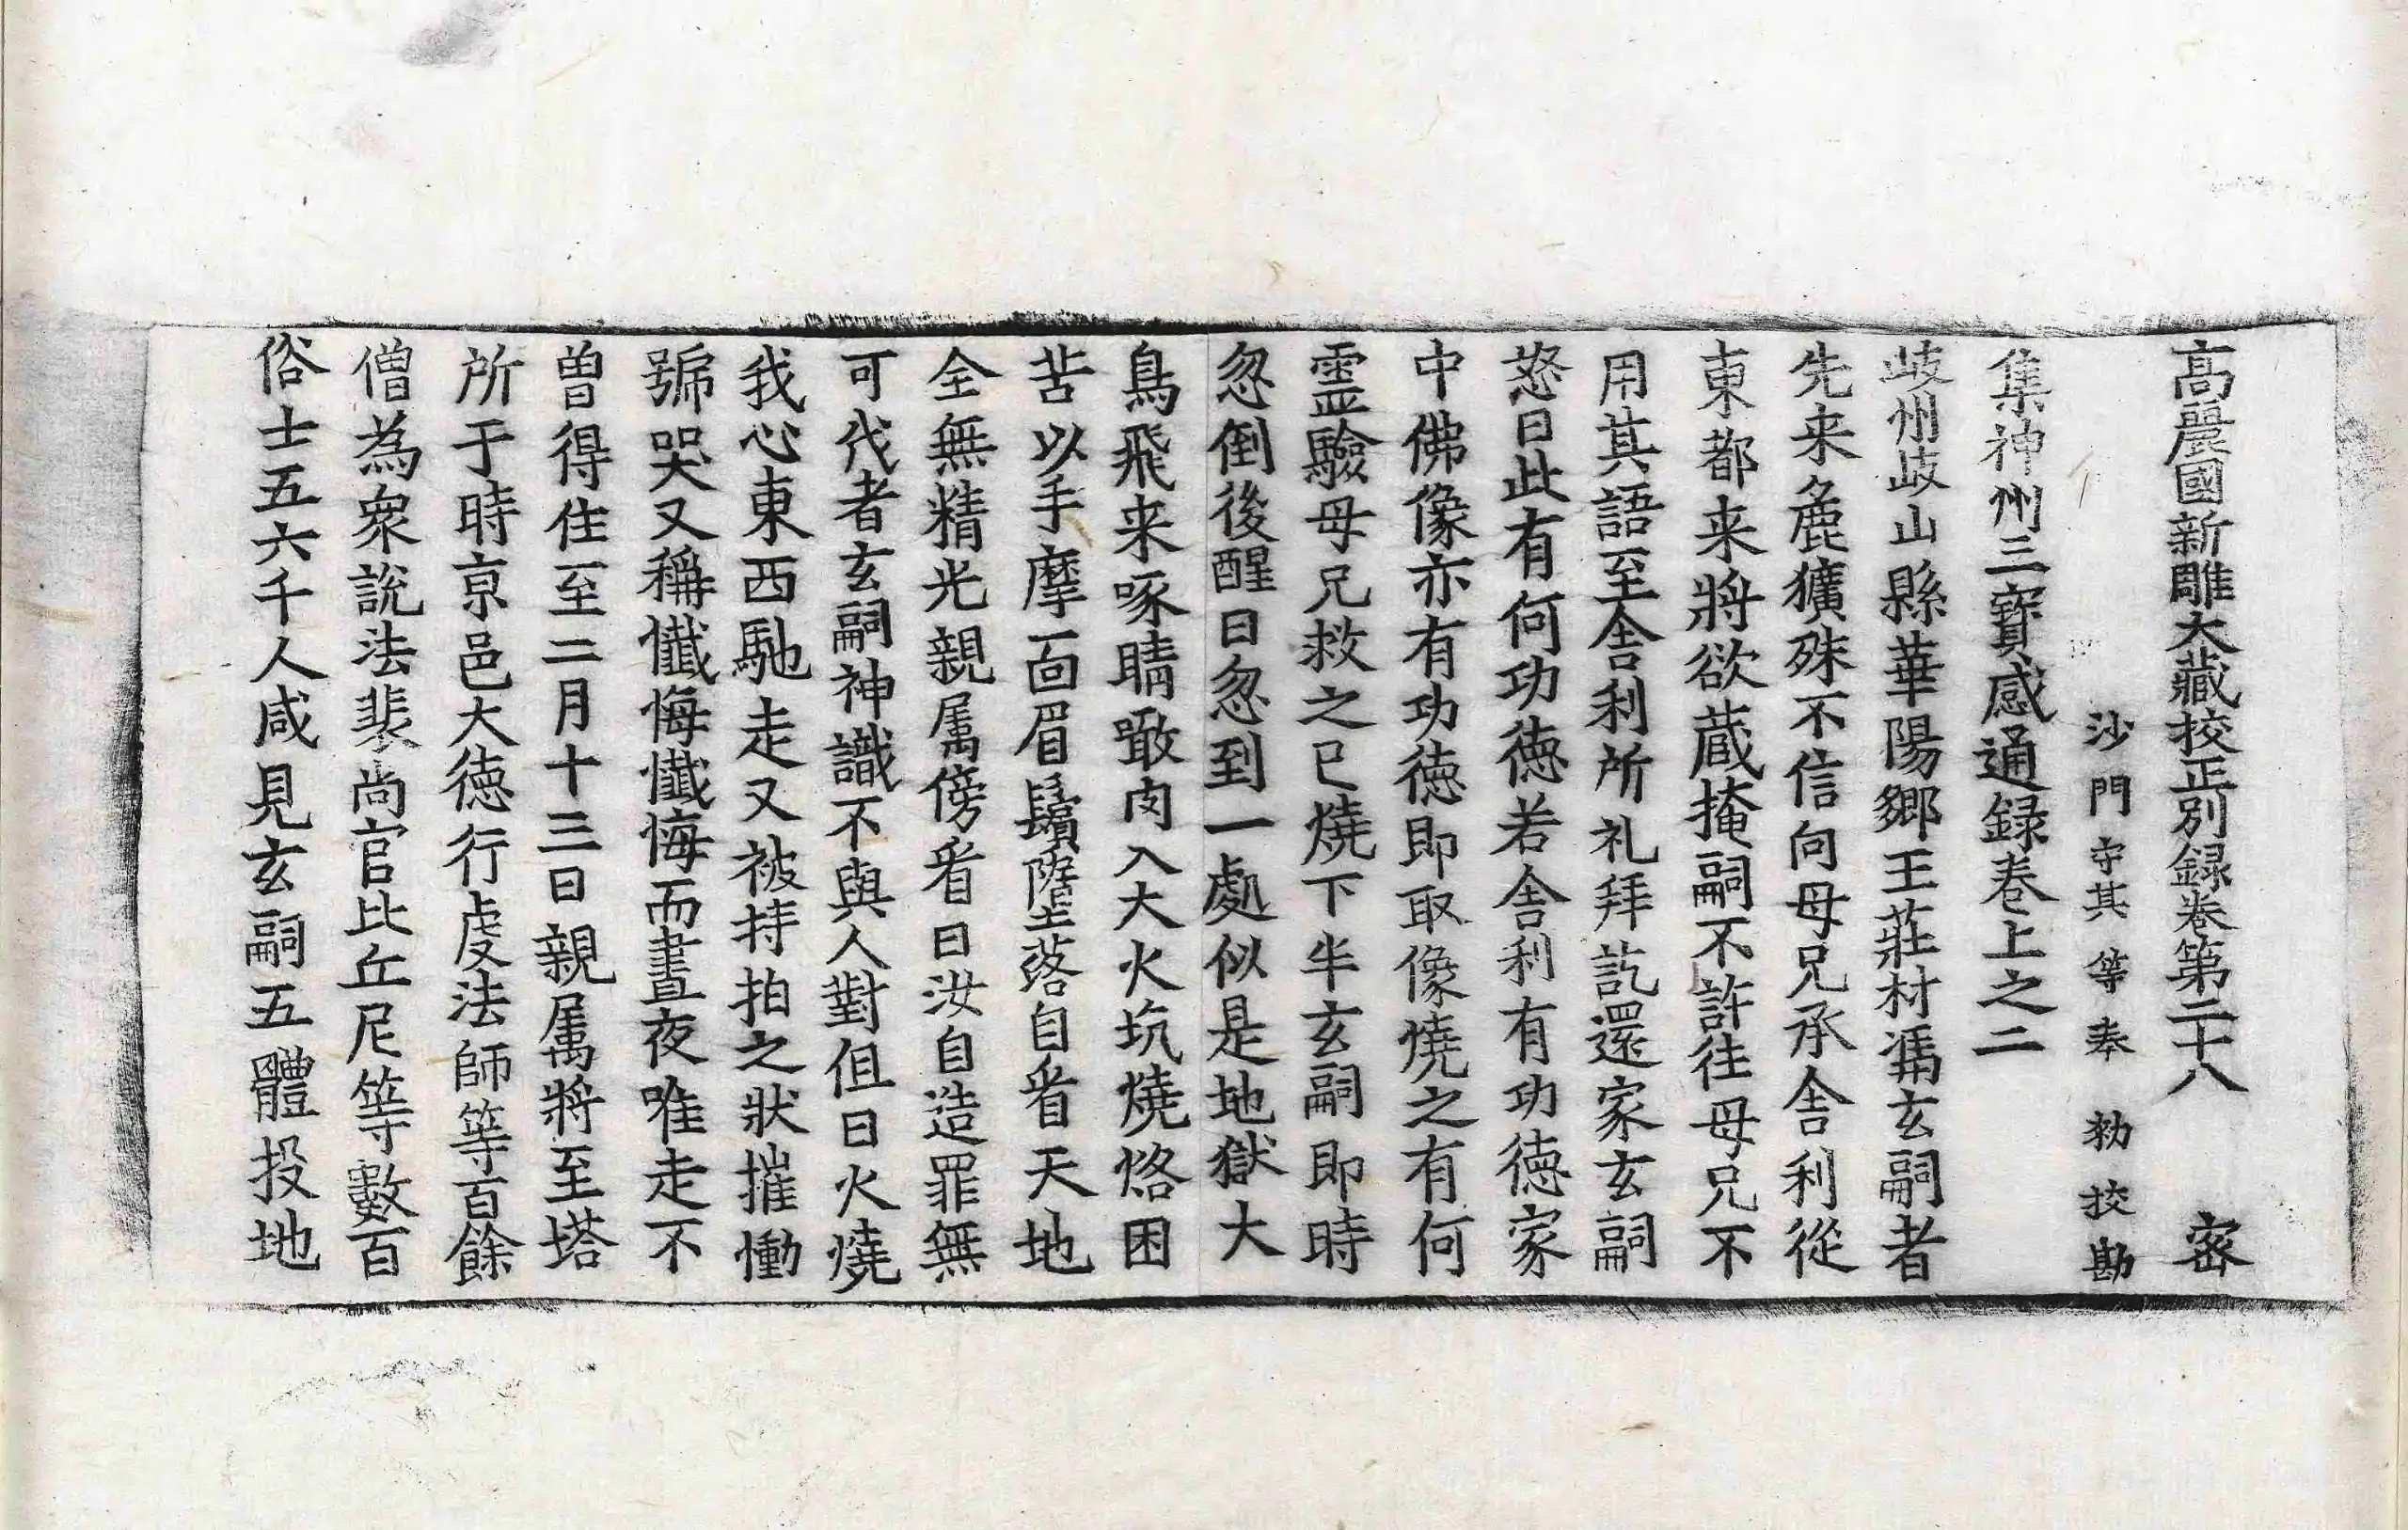 高麗國新雕大藏校正別録卷第二十八　密
沙門守其等奉　勑挍勘
集神州三寶感通録卷上之二
歧州歧山縣華陽鄉王莊村馮玄嗣者
先来麁獷殊不信向母兄承舍利從
東都来將欲蔵掩嗣不許往母兄不
用其語至舍利所礼拜訖還家玄嗣
怒曰此有何功徳若舍利有功徳家
中佛像亦有功徳即取像燒之有何
霊驗母兄救之已燒下半玄嗣即時
忽倒後醒曰忽到一處似是地獄大
鳥飛来啄睛噉肉入大火坑燒烙困
苦以手摩面眉鬚墮落自看天地
全無精光親属傍看曰汝自造罪無
可代者玄嗣神識不與人對但曰火燒
我心東西馳走又被持拍之狀摧慟
號哭又稱懺悔懺悔而晝夜唯走不
曽得住至二月十三日親属將至塔
所于時京邑大徳行虔法師等百餘
僧為衆説法裴尚官比丘尼等數百
俗士五六千人咸見玄嗣五體投地